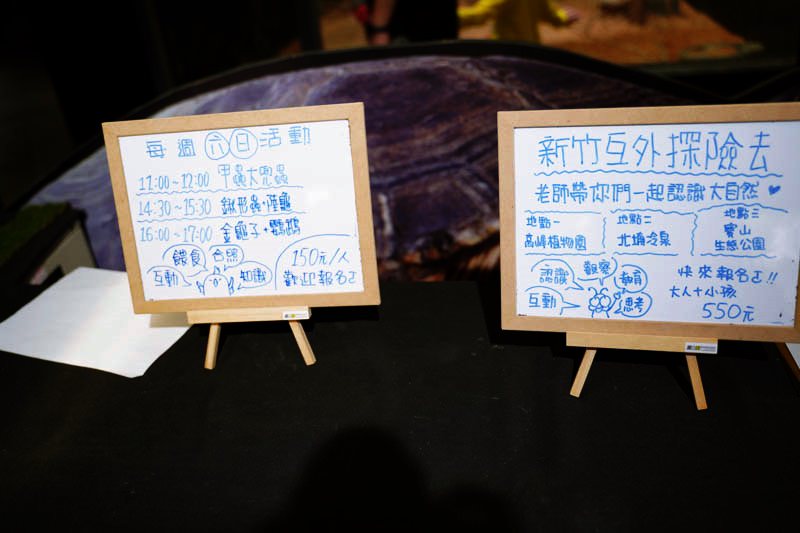 每週六日活動
11:00~12:00 甲蟲大兜蟲
14:30~15:30 鍬形蟲·陸龜
16:00~17:00 金龜子·鸚鵡
餵食 合照
互動 知識
150元/人
歡迎報名
新竹戶外探險去
老師帶你們一起認識大自然
地點一
高峰植物園
地點二
北埔冷泉
地點三
寶山
生態公園
認識 觀察 教育
互動 思考
快來報名!!
大人+小孩
550元